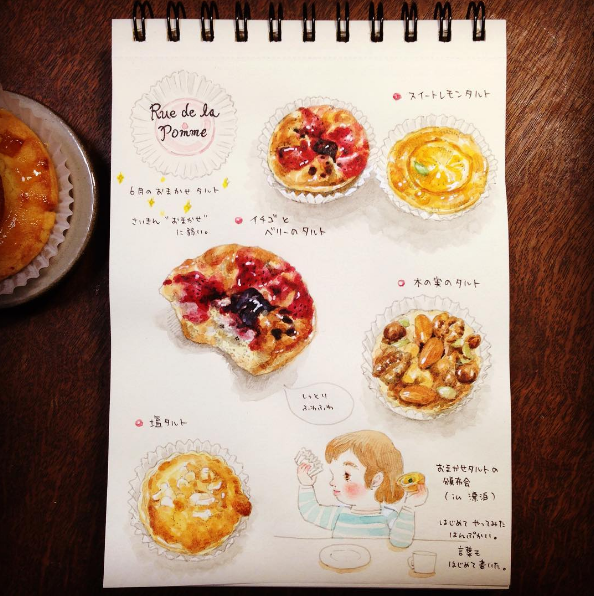 Rue de la
Pomme
6月のおまかせタルト
さいきん"おまかせ"
に弱い。
スイートレモンタルト
イチゴと
ベリーのタルト
木の実のタルト
しっとり
ふわふわ
塩タルト
おまかせタルトの
頒布会
(in 深浜)
はじめて やってみた
はんぷかい。
言葉も
はじめて書いた。